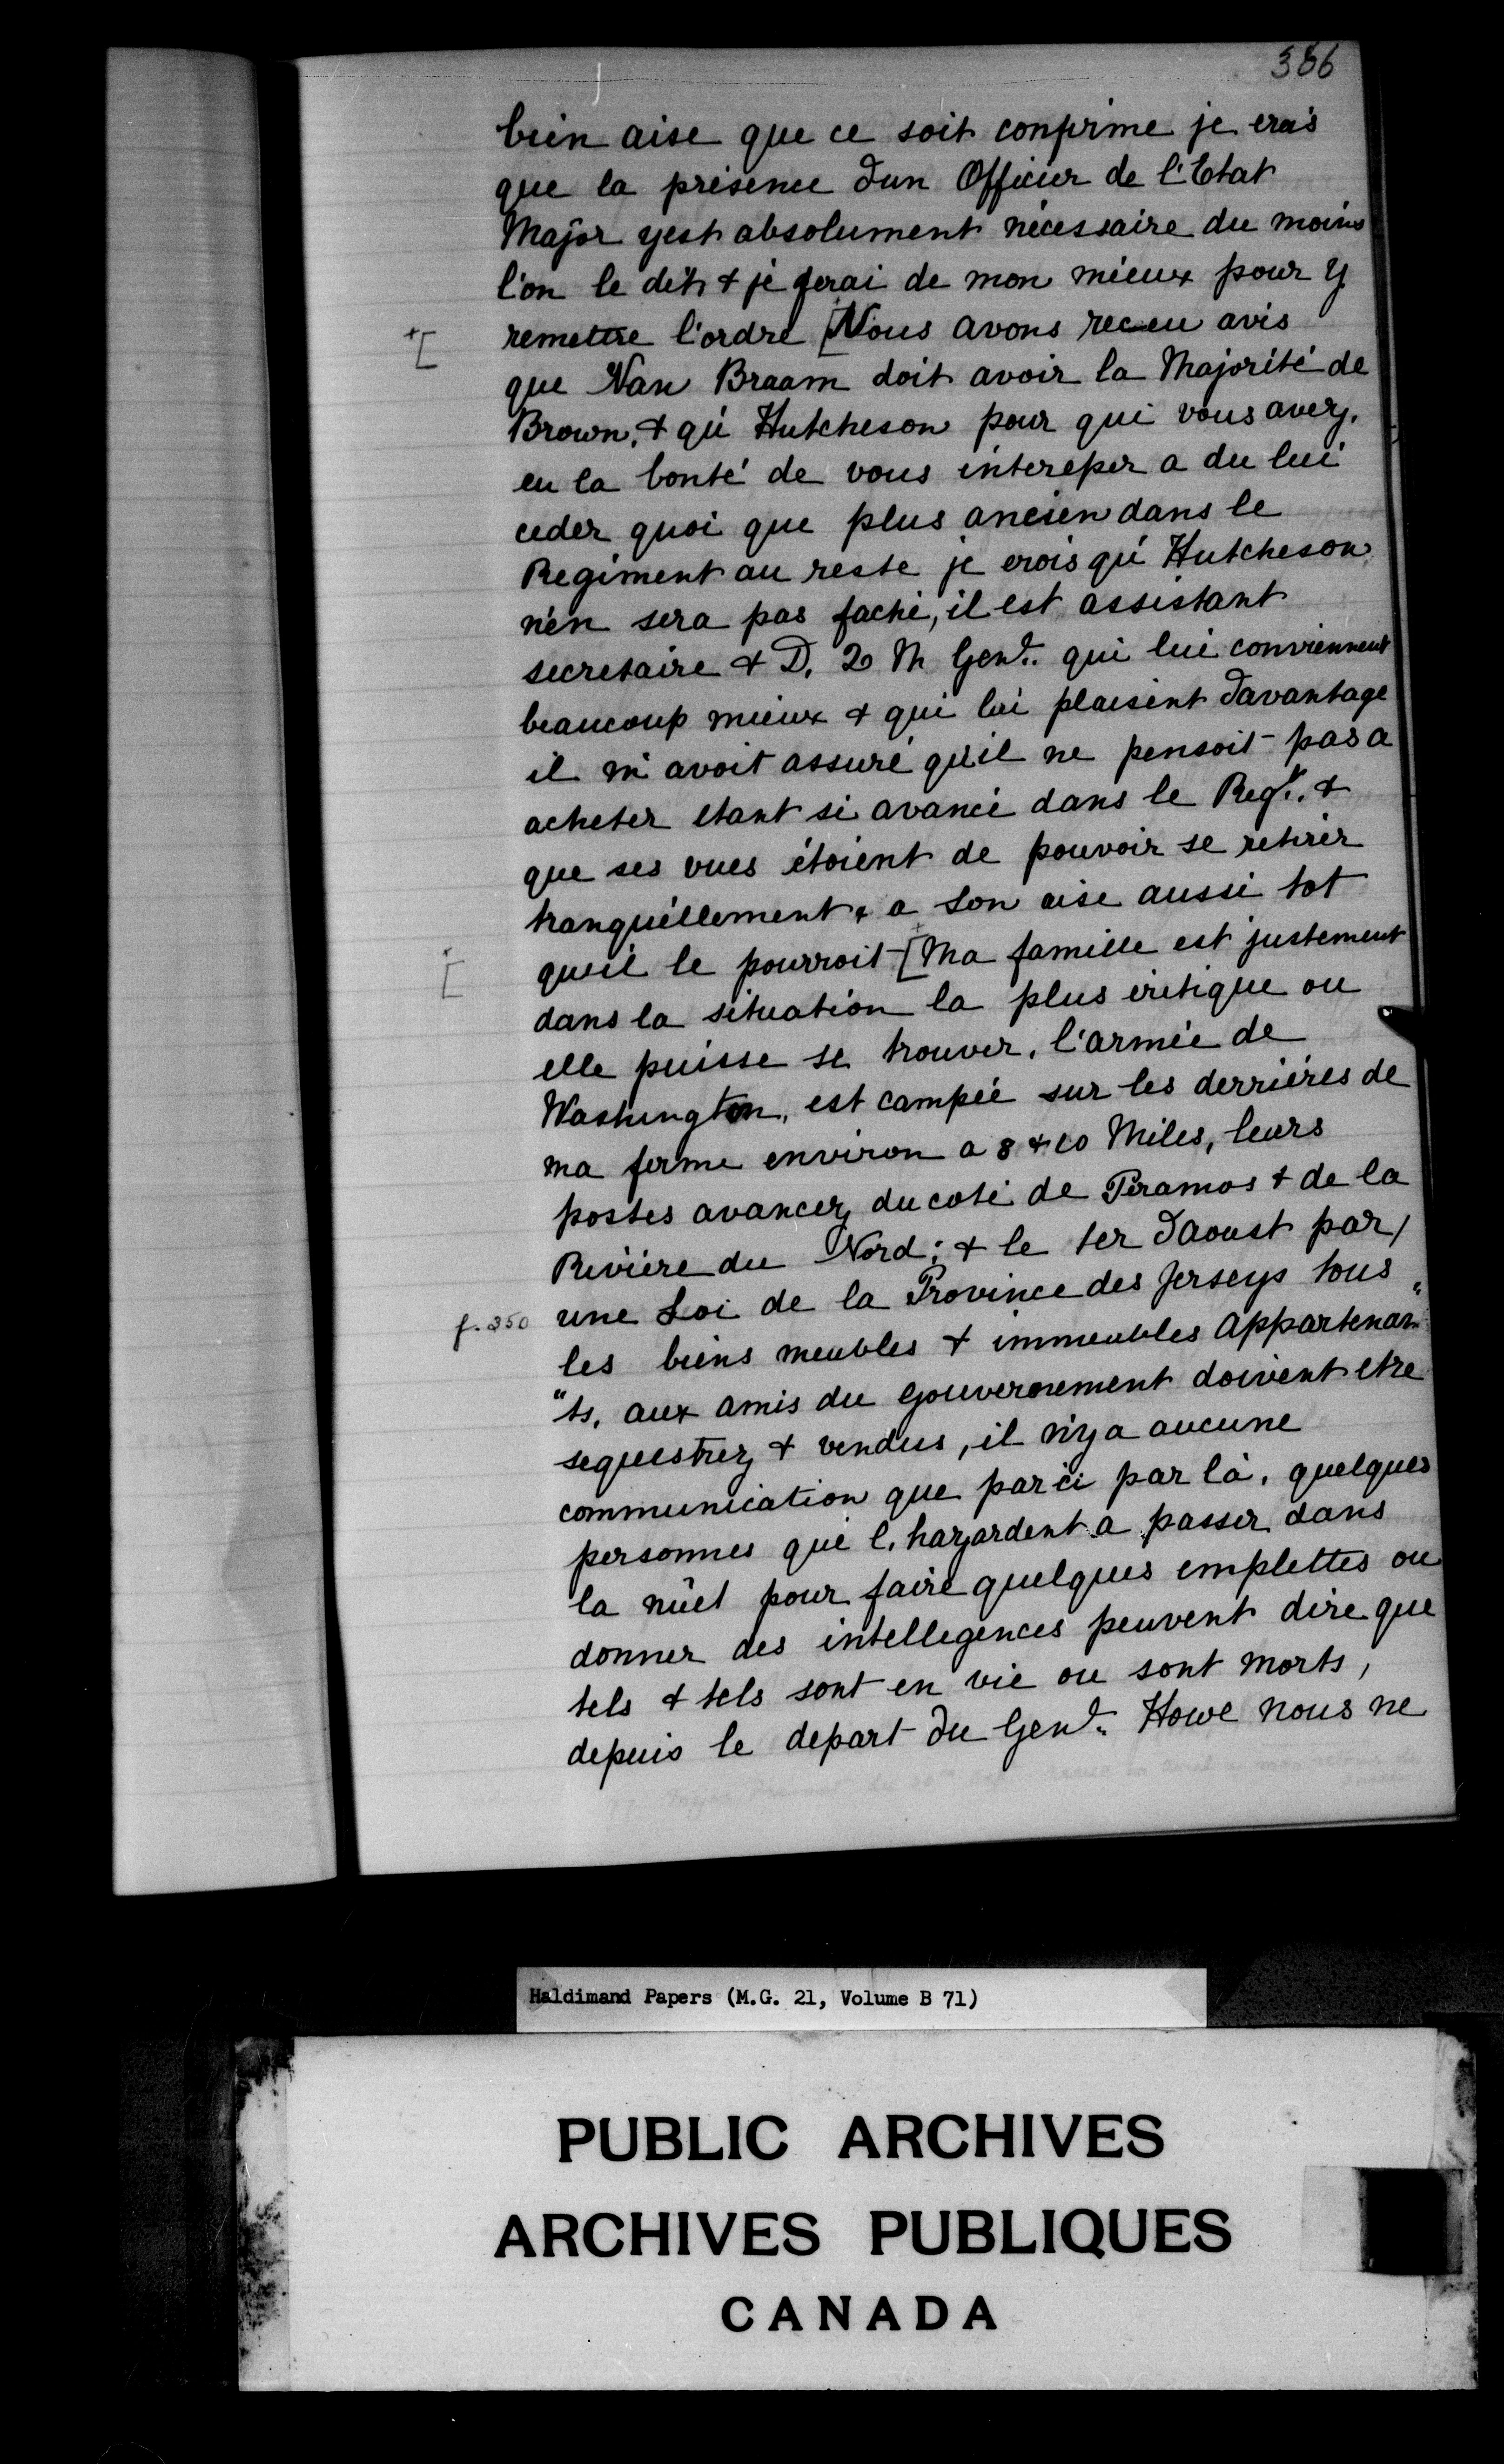 366
bien aise que ce soit confirmé je crois
que la présence d'un Officier de l'Etat
Major y est absolument nécessaire du moins
l'on le dit & je ferai de mon mieux pour y
+[ remettre l'ordre [Nous avons receu avis
que Van Braam doit avoir la Majorité de
Brown, & qu'Hutcheson pour qui vous avez,
eu la bonté de vous interesser a du lui
ceder quoi que plus ancien dans le
Regiment au reste je crois qu'Hutcheson
n'en sera pas faché, il est assistant
secretaire & D. 2 M Gen'l. qui lui conviennent
beaucoup mieux & qui lui plaisent davantage
il m'avoit assuré qu'il ne pensoit pas a
acheter etant si avancé dans le Reg't. &
que ses vues étoient de pouvoir se retirer
tranquillement & a son aise aussi tot
[ qu'il le pourroit [Ma famille est justement
dans la situation la plus critique ou
elle puisse se trouver, l'armée de
Washington, est campée sur les derrières de
ma ferme environ a 8 & 10 Miles, leurs
postes avancez du coté de Peramos & de la
Rivière du Nord; & le 1er d'aoust par/
f. 250 une Loi de la Province des Jerseys tous
les biens meubles & immeubles appartenan"
"ts, aux amis du Gouvernement doivent etre
sequestrez & vendus, il n'y a aucune
communication que par ci par là, quelques
personnes qui l. hazardent a passer dans
la nuit pour faire quelques emplettes ou
donner des intellegences peuvent dire que
tels & tels sont en vie ou sont morts,
depuis le depart du Gen'l. Howe nous ne
Haldimand Papers (M.G. 21, Volume B 71)
PUBLIC ARCHIVES
ARCHIVES PUBLIQUES
CANADA